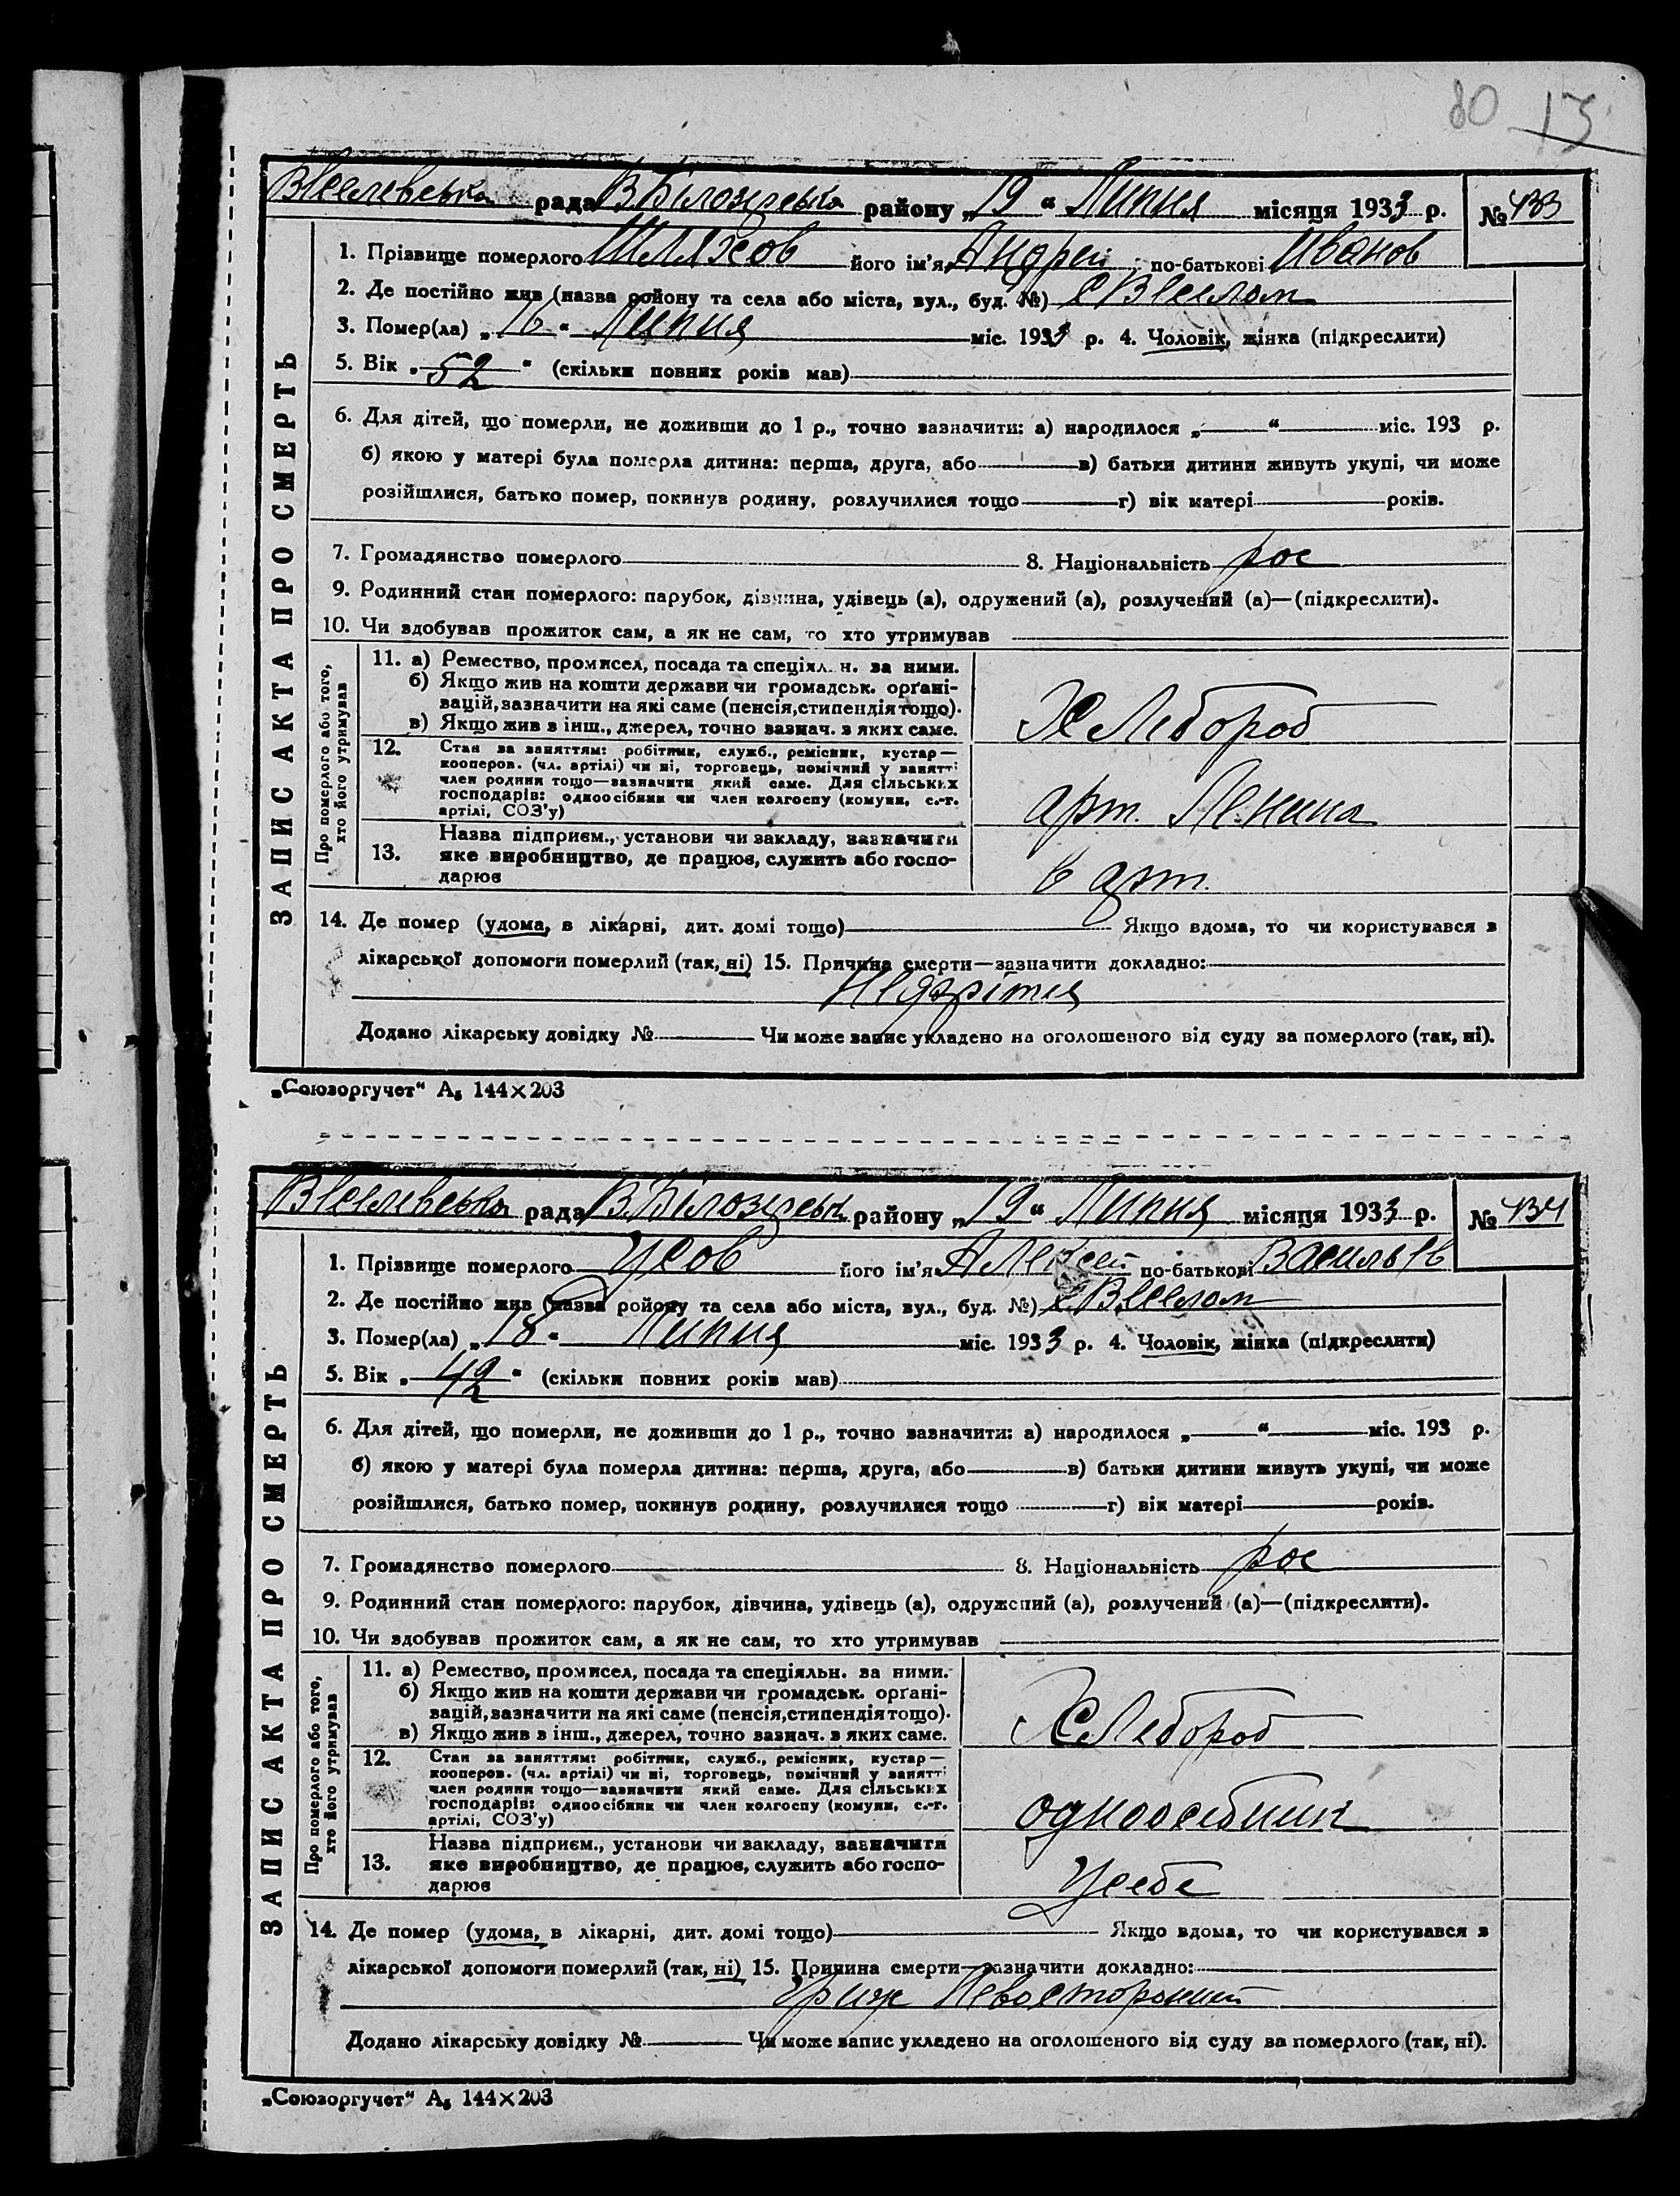 80 13
Веселевська рада В.Білозірська району „19“ Липня місяця 1933 р. № 433
ЗАПИС АКТА ПРО СМЕРТЬ
1. Прізвище померлого Шляхов його ім'я Андрей по-батькові Иванов
2. Де постійно жив (назва ройону та села або міста, вул., буд. №) с Веселом
3. Помер(ла) „16“ Липня міс. 1933 р. 4. Чоловік, жінка (підкреслити)
5. Вік „52“ (скільки повних років мав)
6. Для дітей, що померли, не доживши до 1 р., точно зазначити: а) народилося „ “ міс. 193 р.
б) якою у матері була померла дитина: перша, друга, або в) батьки дитини живуть укупі, чи може
розійшлися, батько помер, покинув родину, розлучилися тощо г) вік матері років.
7. Громадянство померлого 8. Національність рос
9. Родинний стан померлого: парубок, дівчина, удівець (а), одружений (а), розлучений (а)—(підкреслити).
10. Чи здобував прожиток сам, а як не сам, то хто утримував
Про померлого або того,
хто його утримував
11. а) Ремество, промисел, посада та спеціял. н. за ними.
б) Якщо жив на кошти держави чи громадськ. орґані-
зацій, зазначити на які саме (пенсія, стипендія тощо).
в) Якщо жив з інш., джерел, точно зазнач. з яких саме.
Хлебороб
12. Стан за заняттям: робітник, служб., ремісник, кустар—
кооперов. (чл. артілі) чи ні, торговець, помічний у занятті
член родини тощо—зазначити який саме. Для сільських
господарів: одноосібник чи член колгоспу (комуни, с.-г.
артілі, СОЗ'у)
арт. Ленина
13. Назва підприєм., установи чи закладу, зазначити
яке виробництво, де працює, служить або госпо-
дарює
в арт.
14. Де помер (удома, в лікарні, дит. домі тощо) Якщо вдома, то чи користувався з
лікарської допомоги померлий (так, ні) 15. Причина смерти—зазначити докладно:
Додано лікарську довідку № Чи може запис укладено на оголошеного від суду за померлого (так, ні).
„Союзоргучет“ А₅ 144×203
Веселевська рада В.Білозірськ району „19“ Липня місяця 1933 р. № 434
ЗАПИС АКТА ПРО СМЕРТЬ
1. Прізвище померлого Усов його ім'я Алексей по-батькові Васильев
2. Де постійно жив (назва ройону та села або міста, вул., буд. №) с Веселом
3. Помер(ла) „18“ Липня міс. 1933 р. 4. Чоловік, жінка (підкреслити)
5. Вік „42“ (скільки повних років мав)
6. Для дітей, що померли, не доживши до 1 р., точно зазначити: а) народилося „ “ міс. 193 р.
б) якою у матері була померла дитина: перша, друга, або в) батьки дитини живуть укупі, чи може
розійшлися, батько помер, покинув родину, розлучилися тощо г) вік матері років.
7. Громадянство померлого 8. Національність рос
9. Родинний стан померлого: парубок, дівчина, удівець (а), одружений (а), розлучений (а)—(підкреслити).
10. Чи здобував прожиток сам, а як не сам, то хто утримував
Про померлого або того,
хто його утримував
11. а) Ремество, промисел, посада та спеціяльн. за ними.
б) Якщо жив на кошти держави чи громадськ. орґані-
зацій, зазначити на які саме (пенсія, стипендія тощо).
в) Якщо жив з інш., джерел, точно зазнач. з яких саме.
Хлебороб
12. Стан за заняттям: робітник, служб., ремісник, кустар—
кооперов. (чл. артілі) чи ні, торговець, помічний у занятті
член родини тощо—зазначити який саме. Для сільських
господарів: одноосібник чи член колгоспу (комуни, с.-г.
артілі, СОЗ'у)
одноосібник
13. Назва підприєм., установи чи закладу, зазначити
яке виробництво, де працює, служить або госпо-
дарює
У себе
14. Де помер (удома, в лікарні, дит. домі тощо) Якщо вдома, то чи користувався з
лікарської допомоги померлий (так, ні) 15. Причина смерти—зазначити докладно:
Додано лікарську довідку № Чи може запис укладено на оголошеного від суду за померлого (так, ні).
„Союзоргучет“ А₅ 144×203